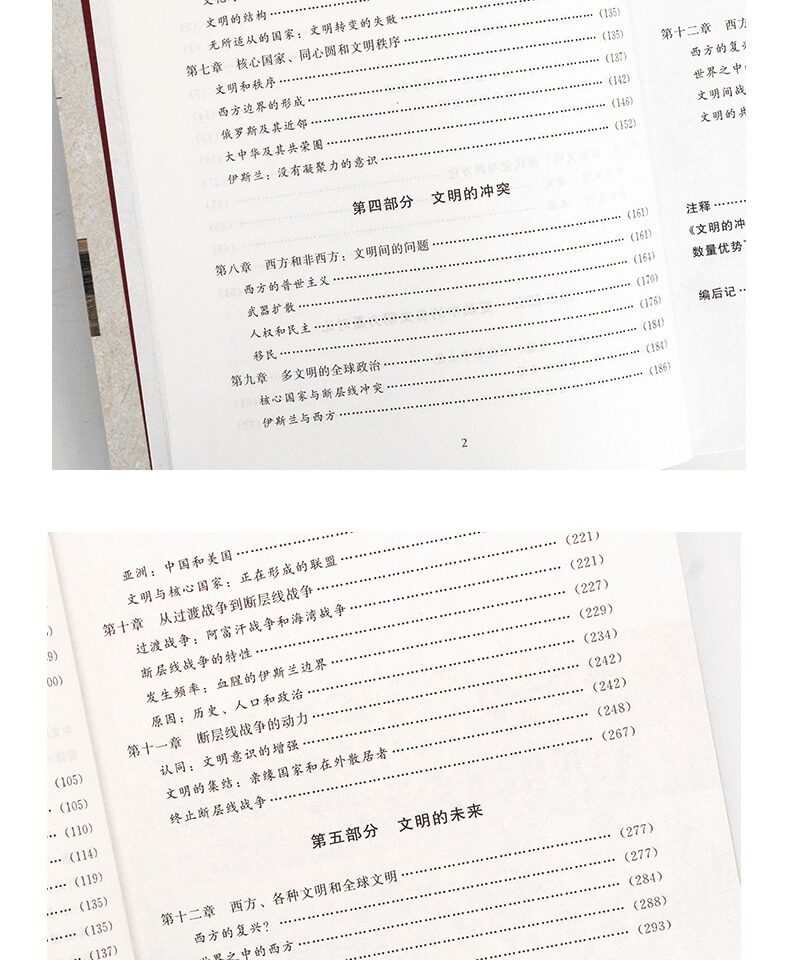 文明的结构
无所适从的国家：文明转变的失败
第七章 核心国家、同心圆和文明秩序 (135)
文明和秩序 (135)
西方边界的形成 (137)
俄罗斯及其近邻 (142)
大中华及其共荣圈 (146)
伊斯兰：没有凝聚力的意识 (152)
第四部分 文明的冲突
第八章 西方和非西方：文明间的问题 (161)
西方的普世主义 (161)
武器扩散 (164)
人权和民主 (170)
移民 (176)
第九章 多文明的全球政治 (184)
核心国家与断层线冲突 (184)
伊斯兰与西方 (186)
2
第十二章 西方
西方的复兴
世界之中的
文明间战
文明的共
注释
《文明的冲
数量优势
编后记
(105)
(105)
(110)
(114)
(119)
(135)
(135)
(137)
亚洲：中国和美国
文明与核心国家：正在形成的联盟
第十章 从过渡战争到断层线战争 (221)
过渡战争：阿富汗战争和海湾战争 (221)
断层线战争的特性 (227)
发生频率：血腥的伊斯兰边界 (229)
原因：历史、人口和政治 (234)
第十一章 断层线战争的动力 (242)
认同：文明意识的增强 (242)
文明的集结：亲缘国家和在外散居者 (248)
终止断层线战争 (267)
第五部分 文明的未来
第十二章 西方、各种文明和全球文明 (277)
西方的复兴？ (277)
世界之中的西方 (284)
(288)
(293)